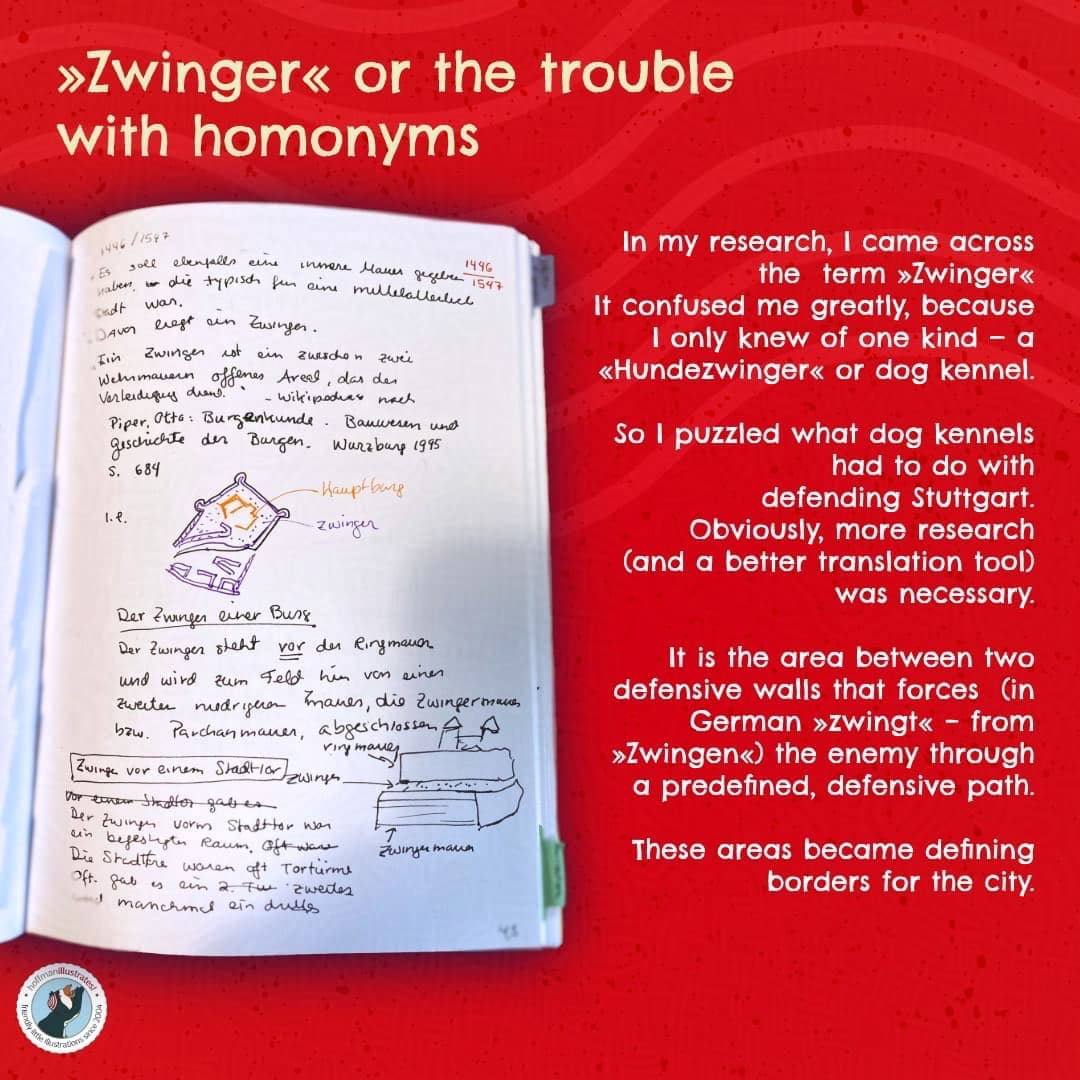 »Zwinger« or the trouble
with homonyms
1446/1547
Es soll ebenfalls eine innere Mauer gegeben
1446
1547
haben, die typisch für eine mittelalterlich
Stadt war.
Davor liegt ein Zwinger.
Ein Zwinger ist ein zwischen zwei
Wehrmauern offenes Areal, das der
Verteidigung dient." - Wikipedia nach
Piper, Otto: Burgenkunde. Bauwesen und
geschichte der Burgen. Wurzburg 1995
S. 684
I.e.
Hauptburg
Zwinger
Der Zwinger einer Burg
Der Zwinger steht vor der Ringmauer
und wird zum Feld hin von einer
zweiten niedrigeren Mauer, die Zwingermauer
bzw. Parchammauer, abgeschlossen
ringmauer
Zwinger vor einem Stadttor
Zwinger
vor einem Stadttor gab es
Der Zwinger vorm Stadttor war
ein befestigter Raum, Oft ware
Zwingermauer
Die Stadttore waren oft Tortürme
Oft gab es ein 2. zweites
manchmal ein drittes
43
In my research, I came across
the term »Zwinger«
It confused me greatly, because
I only knew of one kind – a
«Hundezwinger« or dog kennel.
So I puzzled what dog kennels
had to do with
defending Stuttgart.
Obviously, more research
(and a better translation tool)
was necessary.
It is the area between two
defensive walls that forces (in
German »zwingt« – from
»Zwingen«) the enemy through
a predefined, defensive path.
These areas became defining
borders for the city.
hoffmanillustrates!
friendly little illustrations since 2004